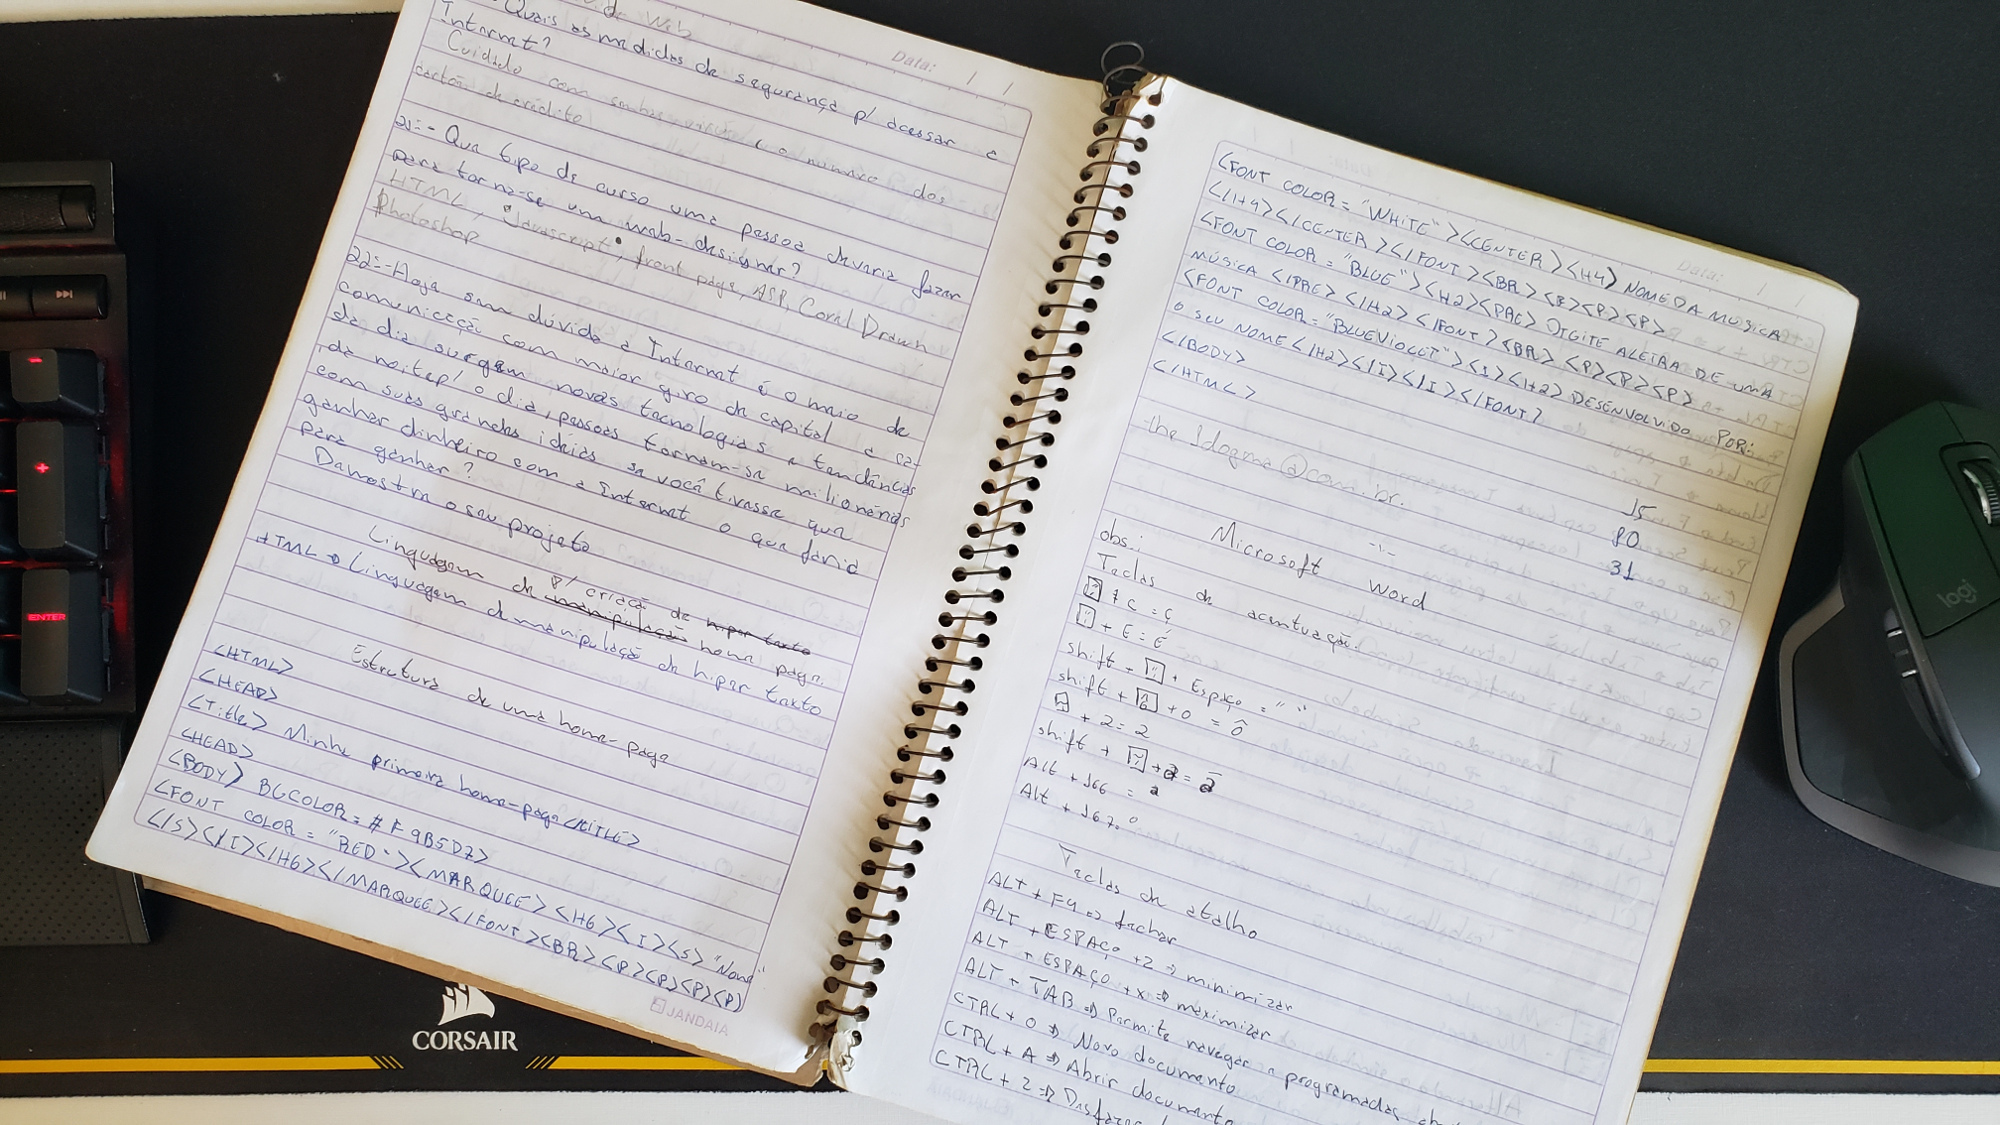 Web
Data: / /
Quais as medidas de segurança p/ acessar a
Internet?
Cuidado com senhas e o número dos
cartão de crédito
21:- Que tipo de curso uma pessoa deveria fazer
para torna-se um web-designer?
HTML, "Javascript", front page, ASP, Corel Drawn
Photoshop
22:- Hoje sem dúvida a Internet é o meio de
comunicação com maior giro de capital a ca-
da dia surgem novas tecnologias e tendências
da noite p/ o dia, pessoas tornam-se milionárias
com suas grandes idéias se você tivesse que
ganhar dinheiro com a Internet o que faria
para ganhar?
Demostre o seu projeto
p/ criação
Linguagem de manipulação de hiper texto home page.
HTML ⇒ Linguagem de manipulação de hiper texto
Estrutura de uma home-page
<HTML>
<HEAD>
<Title> Minha primeira home-page </TITLE>
<HEAD>
<BODY> BGCOLOR = # F9B5D7>
<FONT COLOR = "RED"><MARQUEE><H6><I><S> "Nome"
</S></I></H6></MARQUEE></FONT><BR><P><P><P>
JANDAIA
<FONT COLOR = "WHITE"><CENTER><H4> NOME DA MÚSICA
</H4></CENTER></FONT><BR><B><P><P>
<FONT COLOR = "BLUE"><H2><PRE> DIGITE A LETRA DE UMA
MÚSICA </PRE></H2></FONT><BR><P><P><P>
<FONT COLOR = "BLUEVIOLET"><I><H2> DESENVOLVIDO POR:
O SEU NOME </H2></I></I></FONT>
</BODY>
</HTML>
@com.br.
15
80
31
Microsoft Word
obs.:
Teclas de acentuação.
+ c = ç
+ E = É
shift + + Espaço = " "
shift + + o = ô
+ 2 = 2
shift + + a = ã
Alt + 166 = ª
Alt + 167 º
Teclas de atalho
ALT + F4 ⇒ fechar
ALT + ESPAÇO + 2 ⇒ minimizar
ALT + ESPAÇO + x ⇒ maximizar
ALT + TAB ⇒ Permite navegar a programadas
CTRL + O ⇒ Novo documento
CTRL + A ⇒ Abrir documento
CTRL + Z ⇒ Desfazer
ENTER
CORSAIR
logi